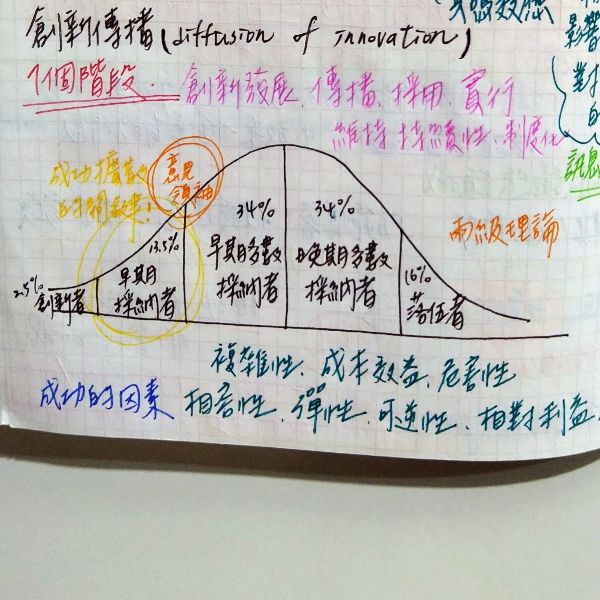 創新傳播(diffusion of innovation)
個階段. 創新發展、傳播、採用、實行
維持持續性、制度化
影響
對
的
訊息
成功擴散
的關鍵!
意見
領袖
兩級理論
2.5%
創新者
13.5%
早期
採納者
34%
早期多數
採納者
34%
晚期多數
採納者
16%
落伍者
複雜性、成本效益、危害性
成功的因素 相容性、彈性、可逆性、相對利益、